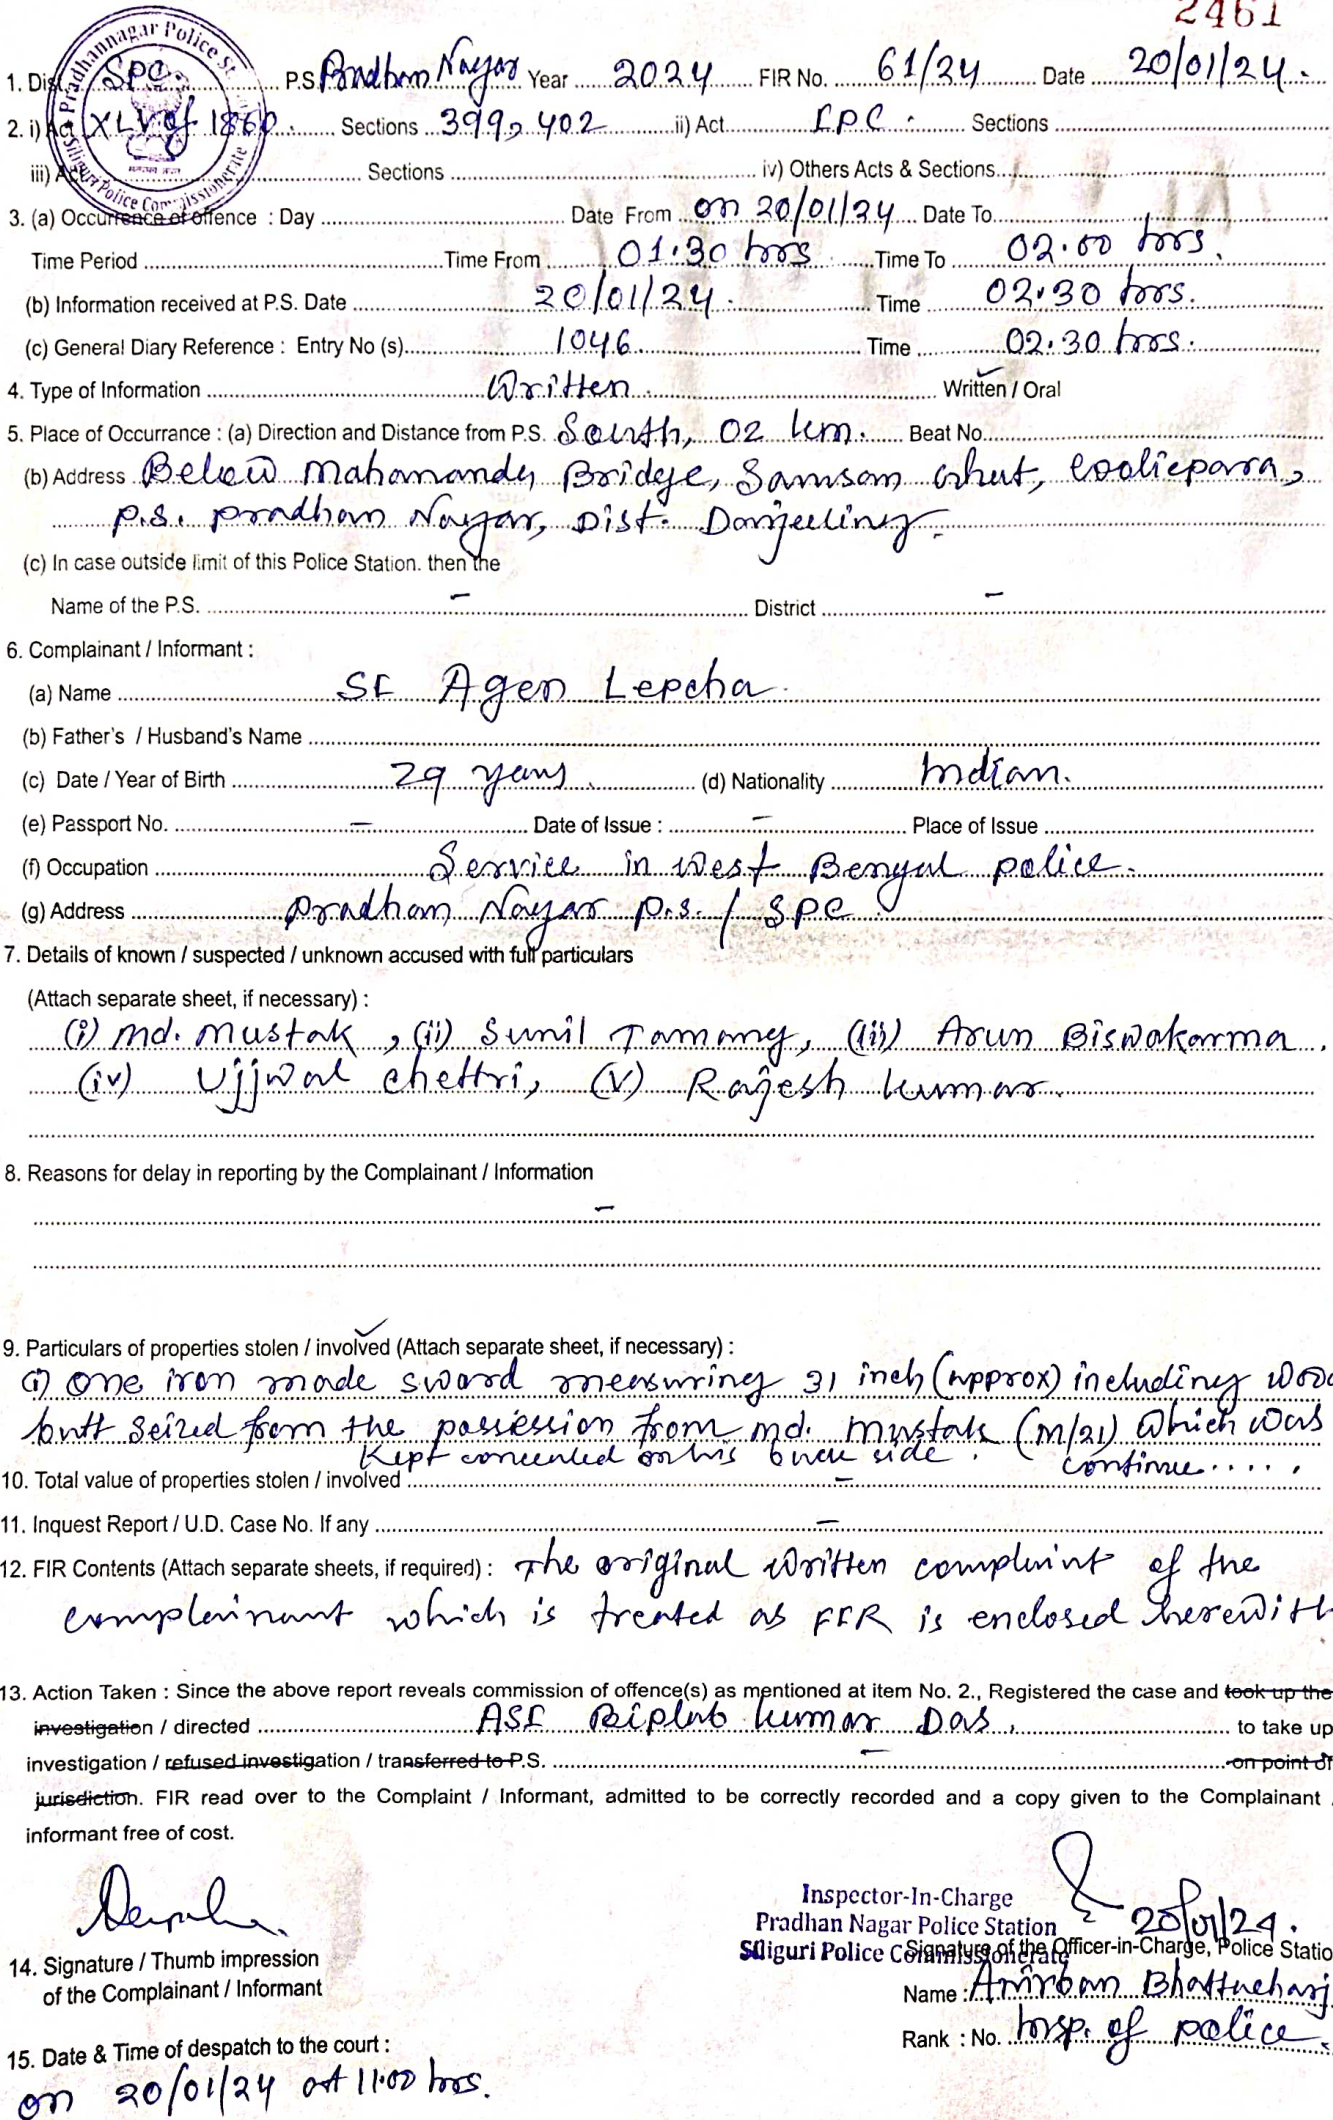 2461
1. Dist. SPC P.S. Pradhan Nagar Year 2024 FIR No. 61/24 Date 20/01/24.
2. i) Act XLV of 1860. Sections 399, 402 ii) Act I.P.C. Sections
iii) Act Sections iv) Others Acts & Sections
3. (a) Occurrence of offence : Day Date From on 20/01/24 Date To
Time Period Time From 01.30 hrs Time To 02.00 hrs.
(b) Information received at P.S. Date 20/01/24. Time 02.30 hrs.
(c) General Diary Reference : Entry No (s) 1046. Time 02.30 hrs.
4. Type of Information Written. Written / Oral
5. Place of Occurrance : (a) Direction and Distance from P.S. South, 02 km. Beat No.
(b) Address Below Mahananda Bridge, Samsan Ghat, Cooliepara,
P.S. Pradhan Nagar, Dist. Darjeeling.
(c) In case outside limit of this Police Station. then the
Name of the P.S. – District –
6. Complainant / Informant :
(a) Name SI Agen Lepcha
(b) Father's / Husband's Name
(c) Date / Year of Birth 29 years. (d) Nationality Indian.
(e) Passport No. – Date of Issue : – Place of Issue
(f) Occupation Service in West Bengal police.
(g) Address Pradhan Nagar P.S. / SPC
7. Details of known / suspected / unknown accused with full particulars
(Attach separate sheet, if necessary) :
(i) Md. Mustak, (ii) Sunil Tamang, (iii) Arun Biswakarma.
(iv) Ujjwal Chettri, (v) Rajesh Kumar.
8. Reasons for delay in reporting by the Complainant / Information
–
9. Particulars of properties stolen / involved (Attach separate sheet, if necessary) :
(i) One iron made sword measuring 31 inch (approx) including
butt seized from the possession from Md. Mustak (M/21) which was
Kept concealed on his back side. Continue.....
10. Total value of properties stolen / involved –
11. Inquest Report / U.D. Case No. If any –
12. FIR Contents (Attach separate sheets, if required) : The original written complaint of the
complainant which is treated as FIR is enclosed herewith
13. Action Taken : Since the above report reveals commission of offence(s) as mentioned at item No. 2., Registered the case and took up the
investigation / directed ASI Biplab Kumar Das, to take up
investigation / refused investigation / transferred to P.S. – on point of
jurisdiction. FIR read over to the Complaint / Informant, admitted to be correctly recorded and a copy given to the Complainant /
informant free of cost.
Inspector-In-Charge
Pradhan Nagar Police Station 20/01/24.
Siliguri Police Commissionerate
Signature of the Officer-in-Charge, Police Station
14. Signature / Thumb impression
of the Complainant / Informant
Name : Anirban Bhattacharj
Rank : No. Insp. of police.
15. Date & Time of despatch to the court :
on 20/01/24 at 11.00 hrs.
Pradhannagar Police St
Siliguri Police Commissionerate